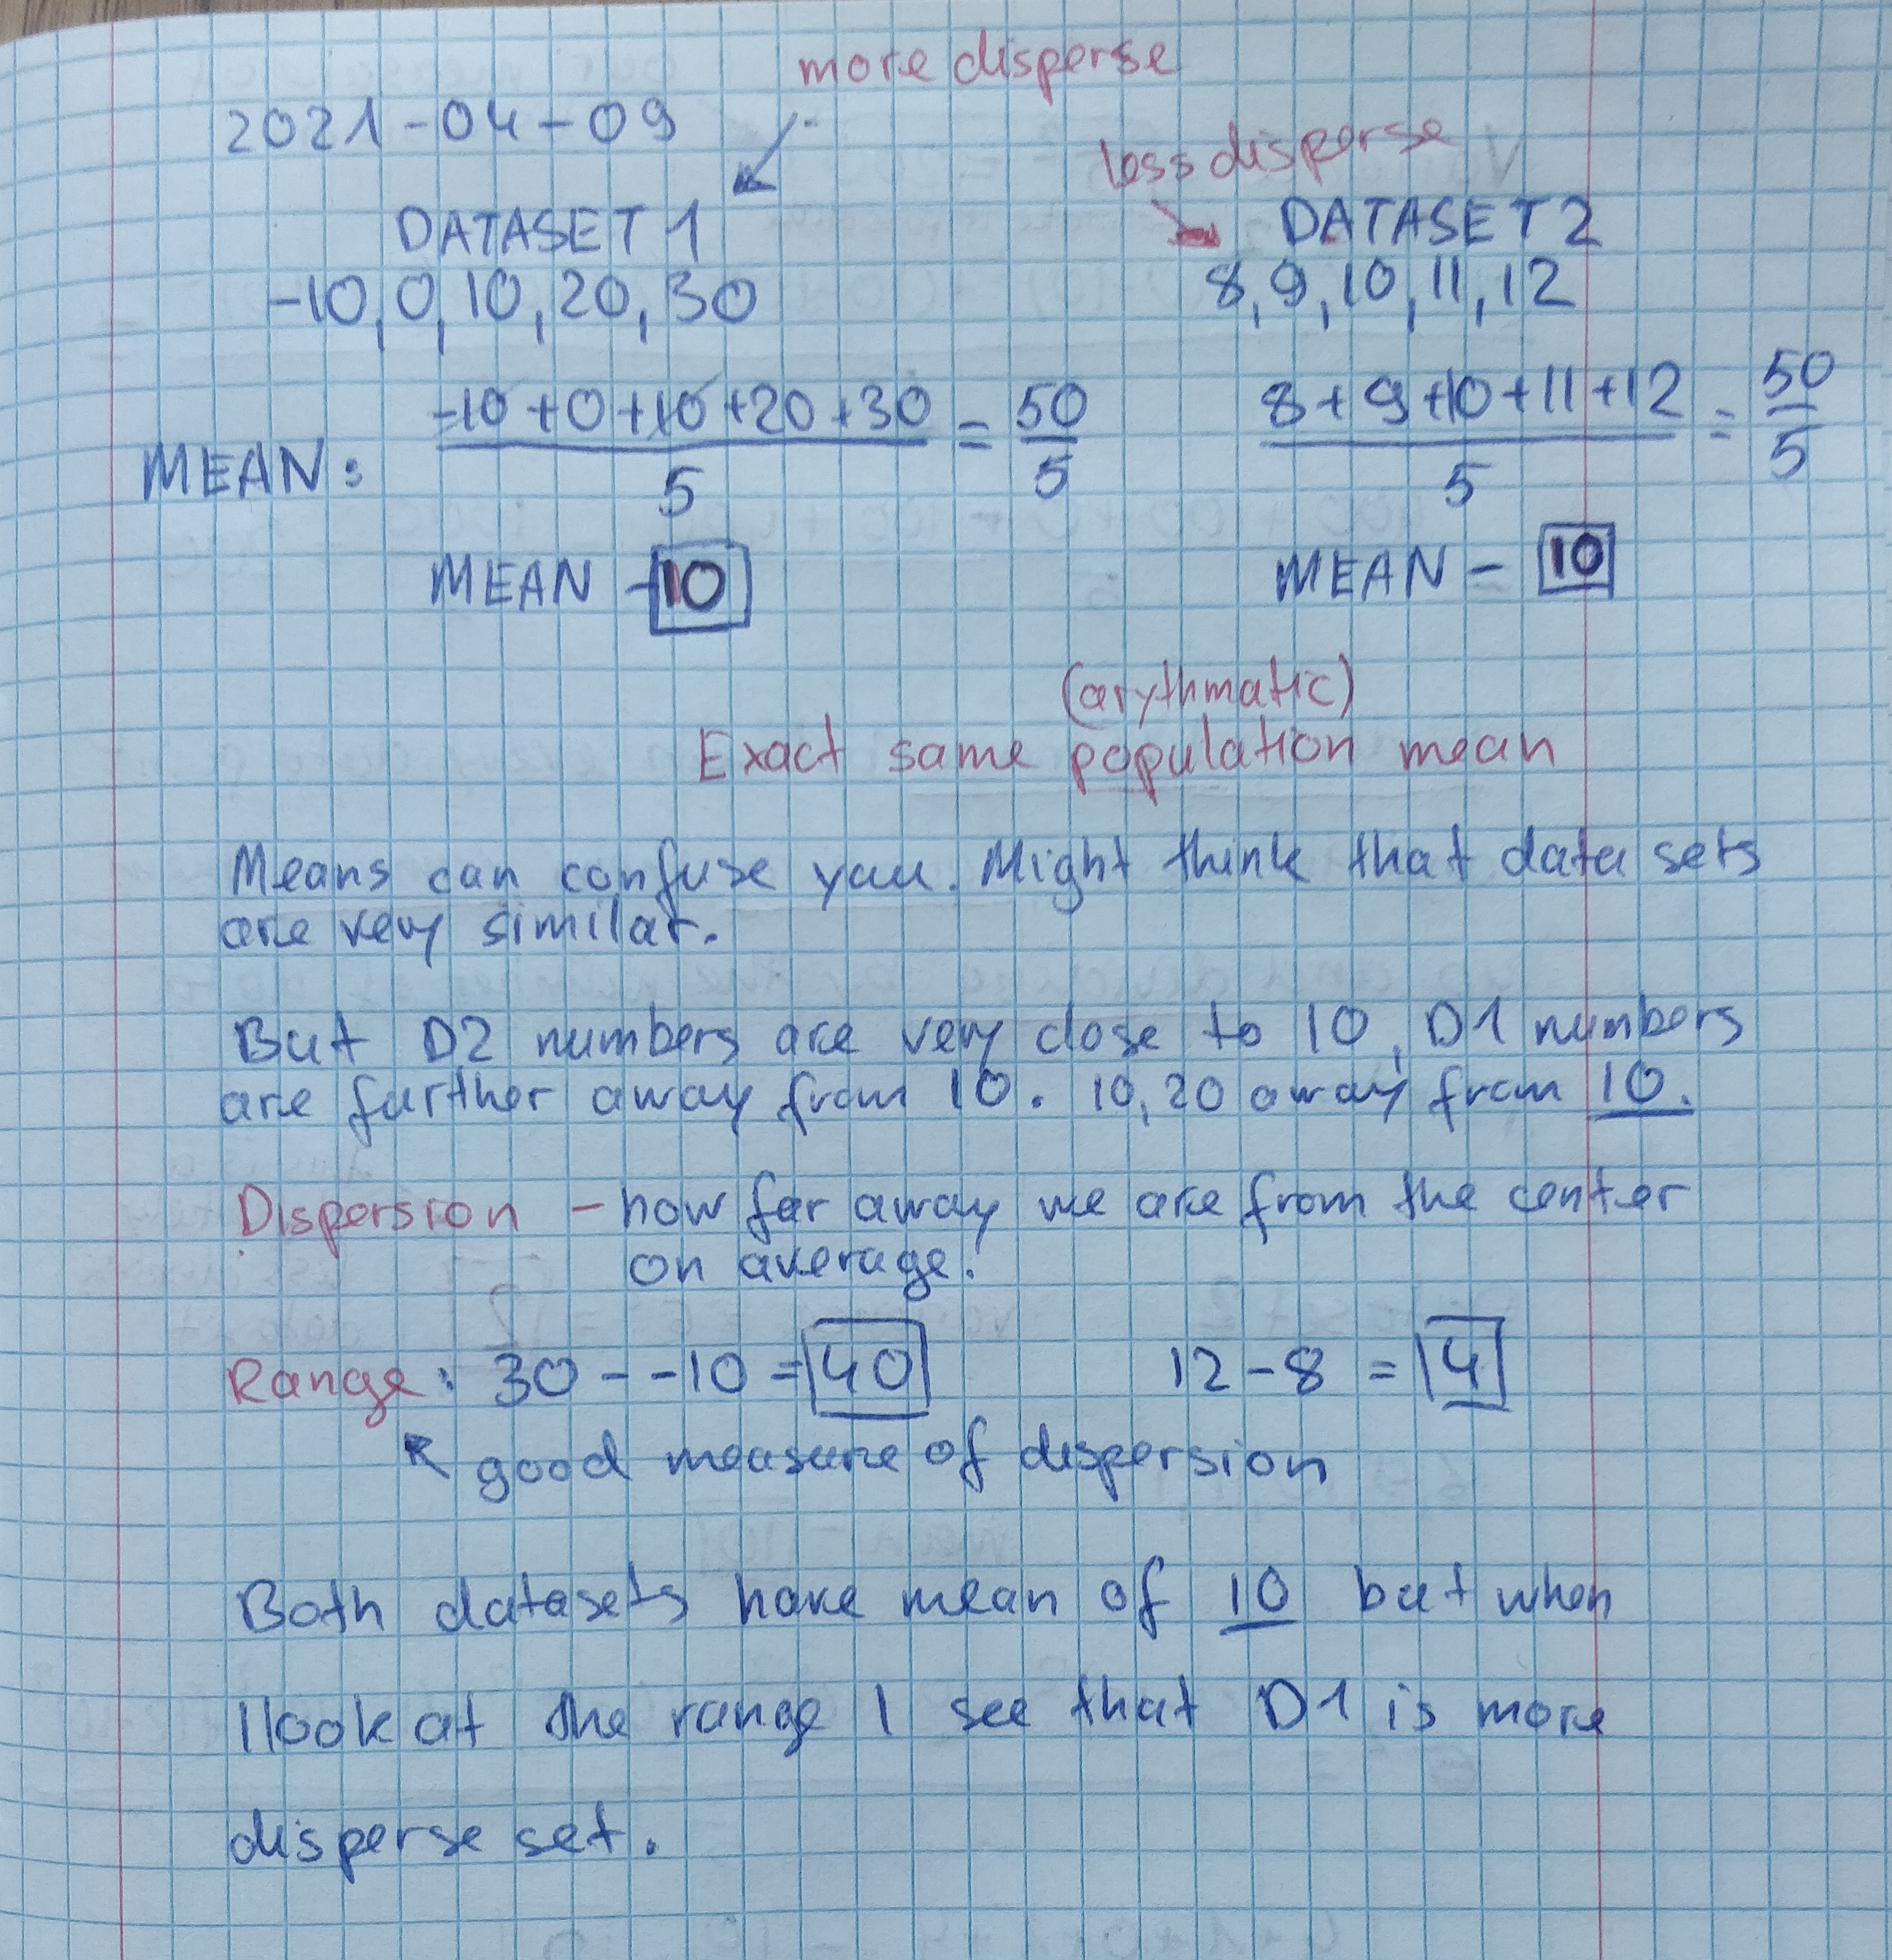 more disperse
2021-04-09
less disperse
DATASET 1
DATASET 2
-10, 0, 10, 20, 30
8, 9, 10, 11, 12
MEAN: -10+0+10+20+30 / 5 = 50 / 5
8+9+10+11+12 / 5 = 50 / 5
MEAN - 10
MEAN - 10
(arythmatic)
Exact same population mean
Means can confuse you. Might think that data sets
are very similar.
But D2 numbers are very close to 10, D1 numbers
are further away from 10. 10, 20 away from 10.
Dispersion - how far away we are from the center
on average!
Range: 30 - -10 = 40
12 - 8 = 4
good measure of dispersion
Both datasets have mean of 10 but when
I look at the range I see that D1 is more
disperse set.